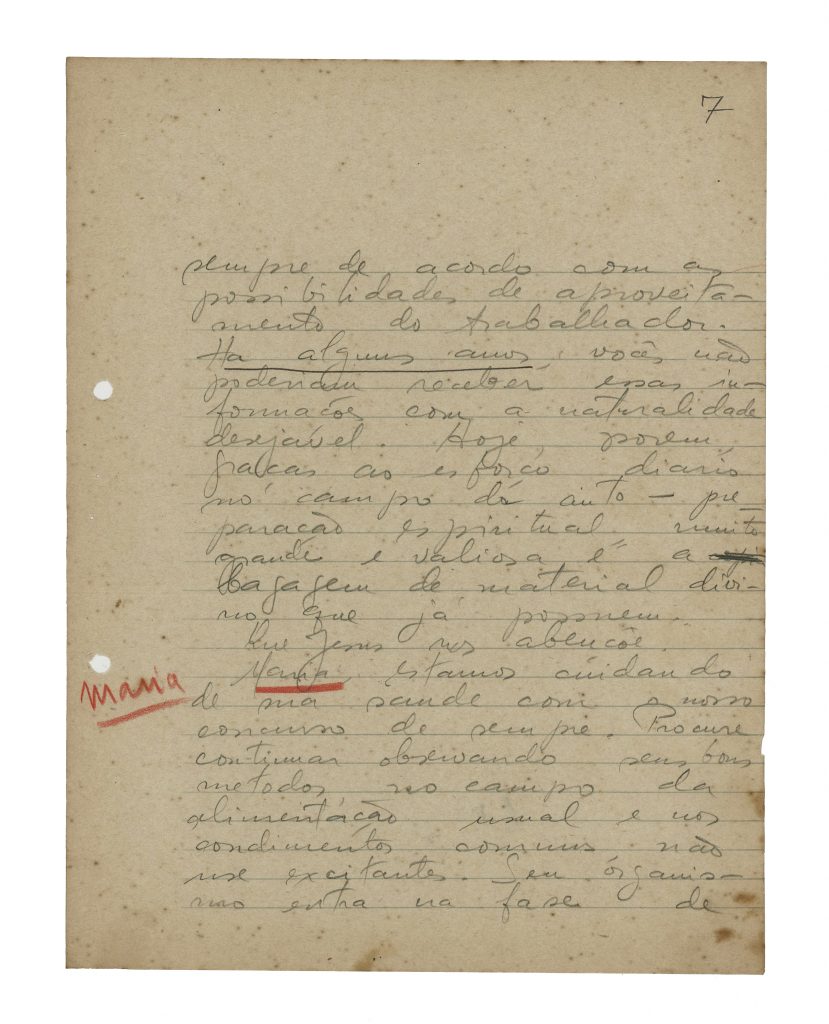 7
sempre de acordo com as
possibilidades de aproveita-
mento do trabalhador.
Ha alguns anos, vocês não
poderiam receber essas in-
formações com a naturalidade
desejável. Hoje, porem,
graças ao esforço diario
no campo da auto-pre-
paração espiritual muito
grande e valiosa é a
bagagem de material divi-
no que já possuem.
Que Jesus nos abençõe.
Maria, estamos cuidando
Maria
de sua saude com o nosso
concurso de sempre. Procure
continuar observando seus bons
metodos no campo da
alimentação usual e nos
condimentos comuns não
use excitantes. Seu órganis-
mo entra na fase de